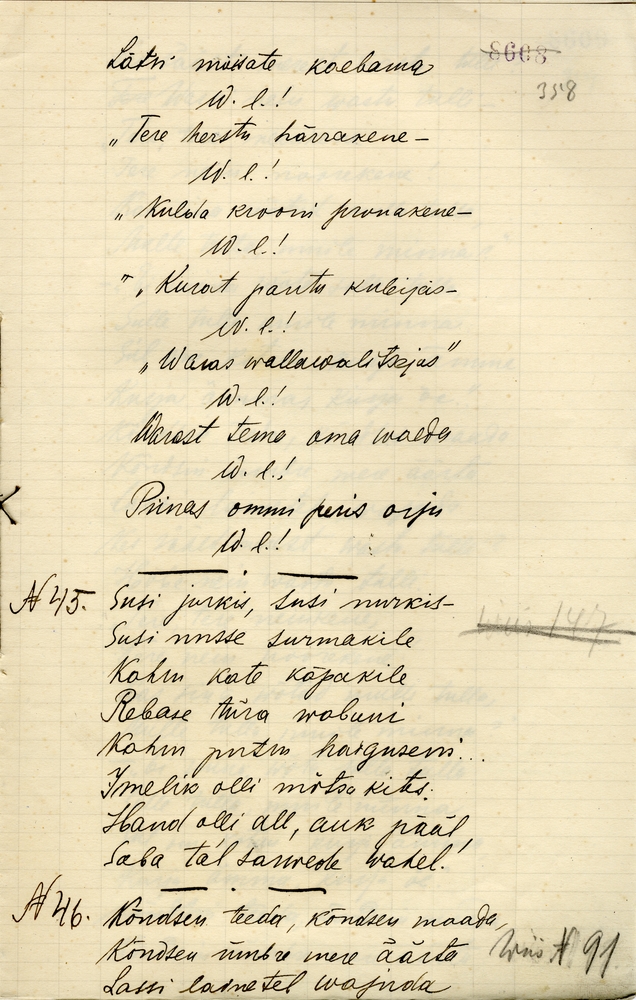 Lätsi mõisate kaebama
8608
W. l.!
358
„Tere herstu härrakene—
W. l.!
„Kulda krooni prouakene—
W. l.!
" „Kurat pantu kubijas—
W. l.!
„Waras wallawalitsejas"
W. l.!
Warast tema oma walda
W. l.!
Piinas ommi peris orju
W. l.!
N 45. Susi jurkis, susi nurkis—
Susi nusse surmakile
Kahu kate käpakile
Rebase türa wabuni
Kahu putsu haiguseni...
Imelik olli mõtsa kits:
Hand olli all, auk pääl,
Saba tal sarwede wahel!
N 46. Kõndsen teeda, kõndsen maada,
Kõndsen ümbre mere äärta
wiis N 91
Lassi lainetel wajuda